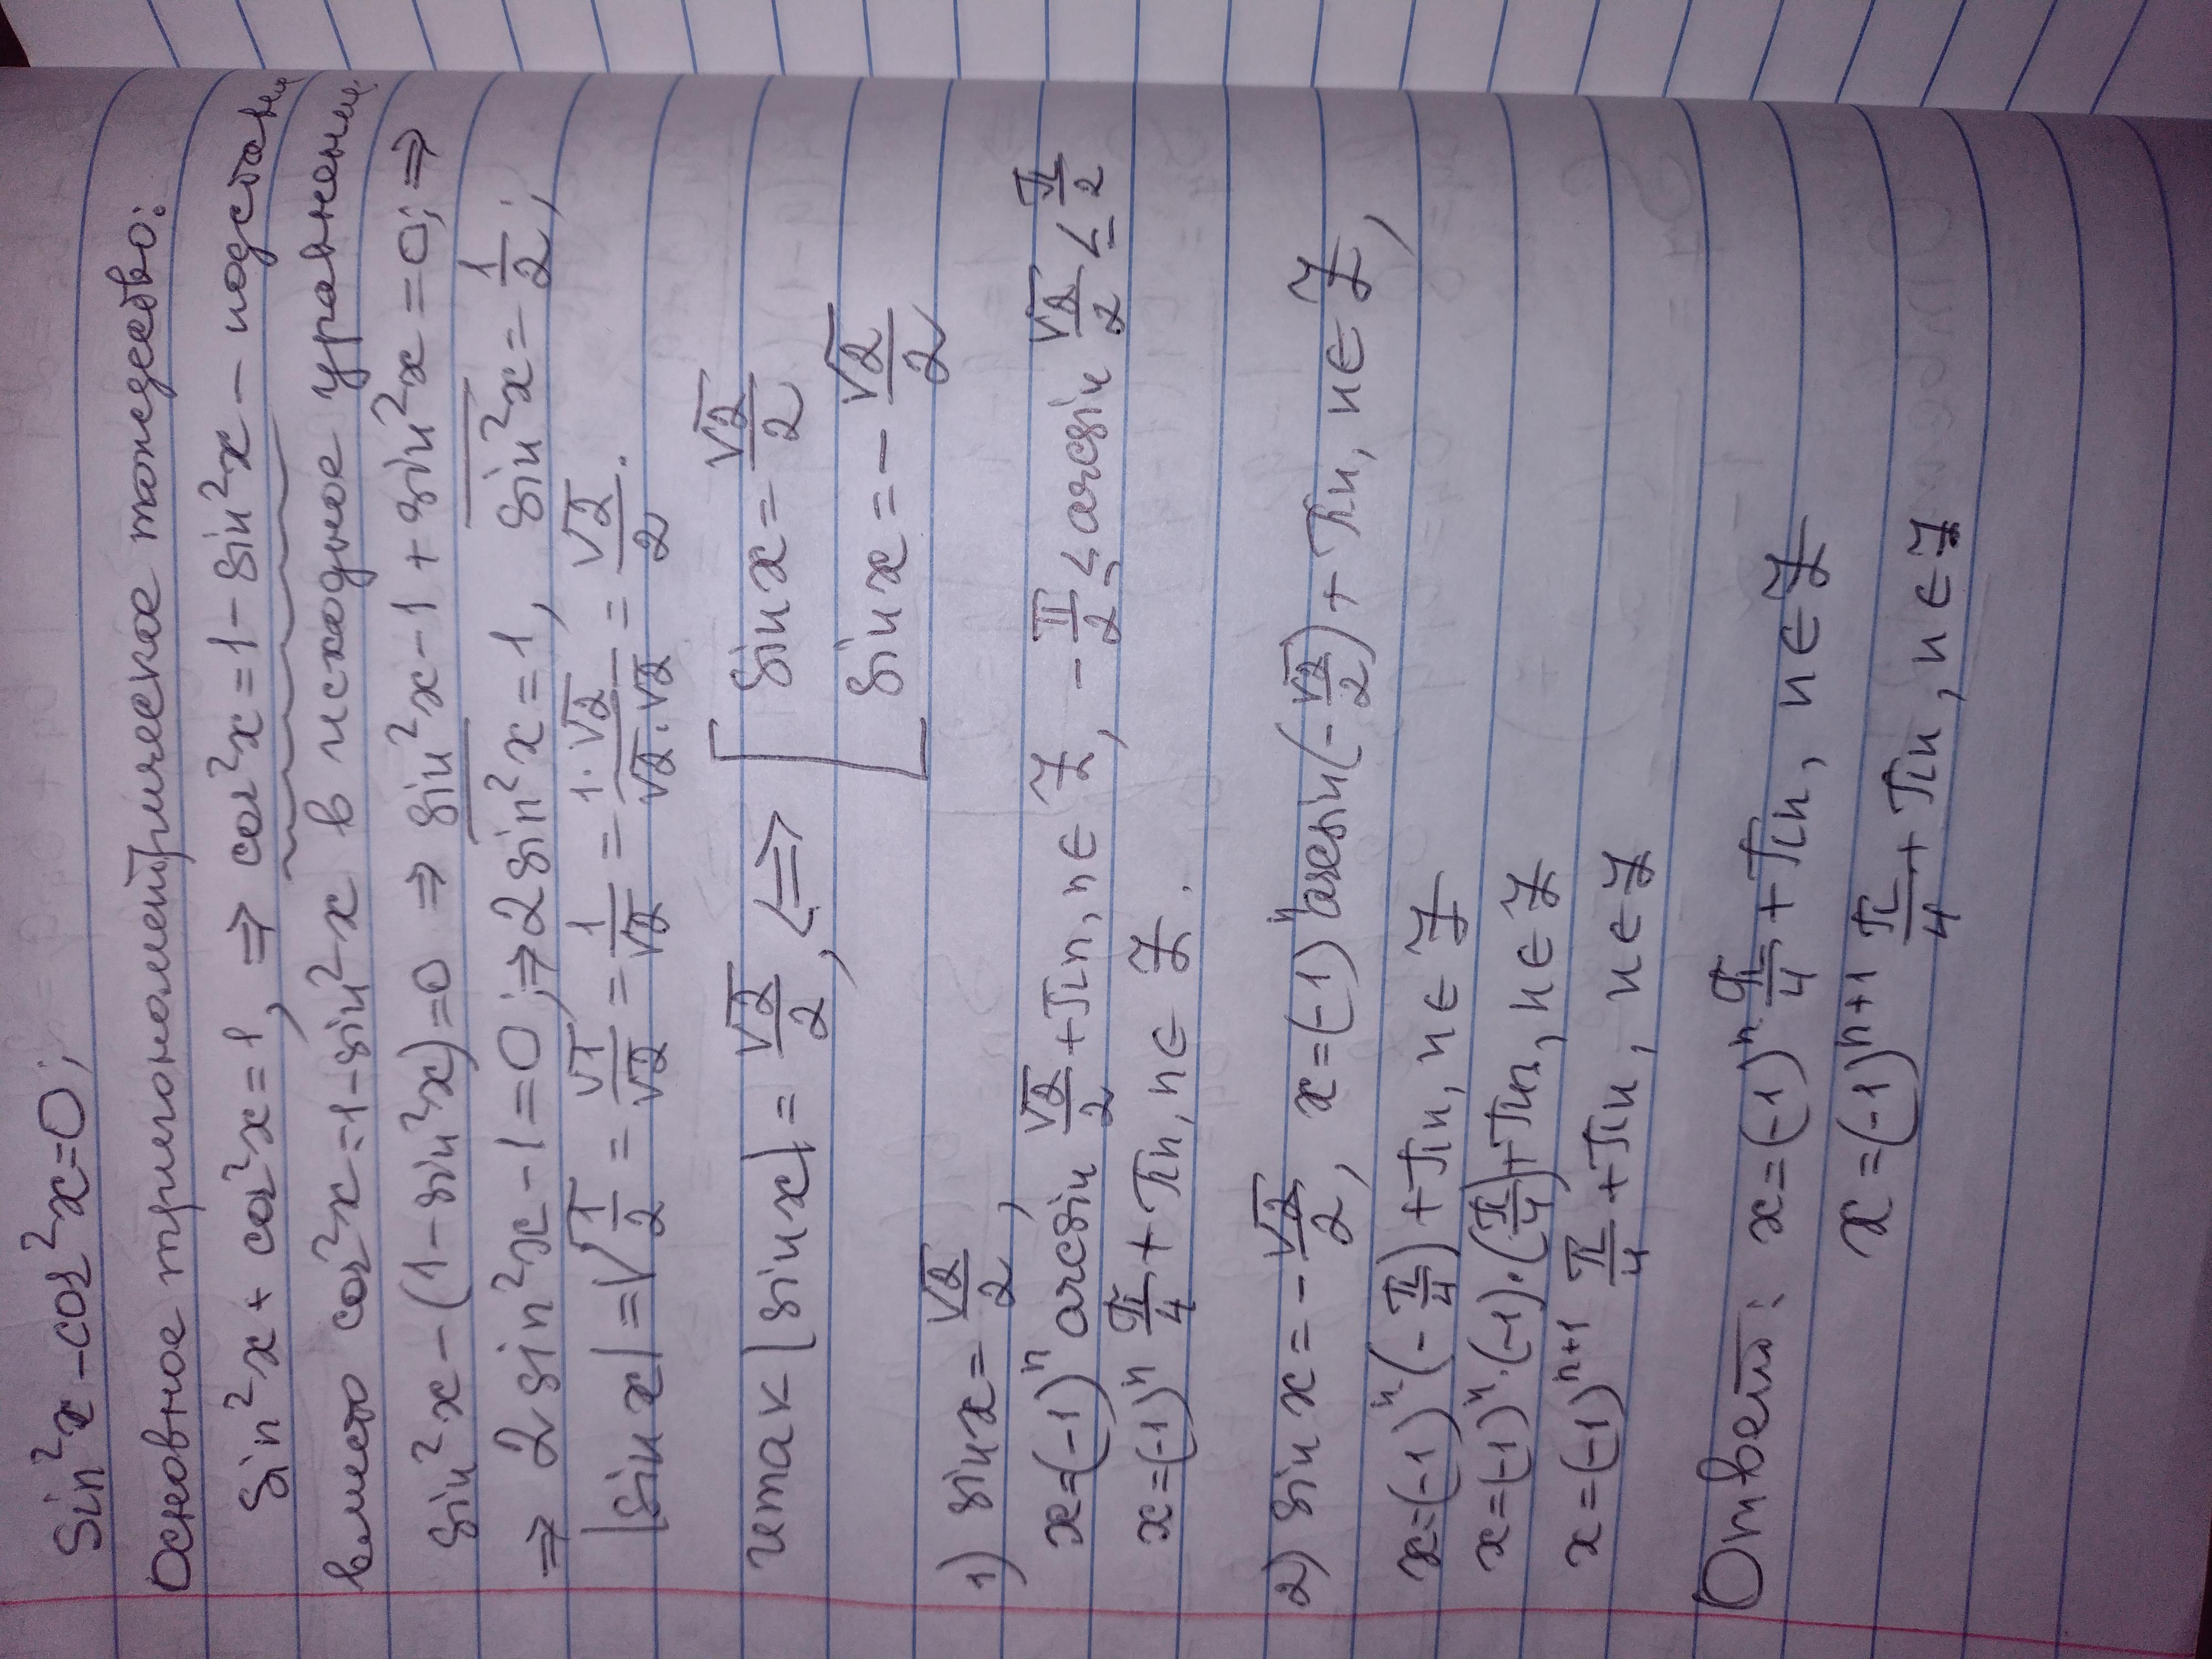 sin²x - cos²x = 0;
Основное тригонометрическое тождество:
sin²x + cos²x = 1, ⇒ cos²x = 1 - sin²x - подставим
вместо cos²x = 1 - sin²x в исходное уравнение
sin²x - (1 - sin²x) = 0 ⇒ sin²x - 1 + sin²x = 0; ⇒
⇒ 2sin²x - 1 = 0; ⇒ 2sin²x = 1, sin²x = 1/2;
|sin x| = √(1/2) = √1/√2 = 1/√2 = 1·√2/√2·√2 = √2/2.
итак |sin x| = √2/2, ⇔ [ sin x = √2/2
sin x = - √2/2
1) sin x = √2/2,
x = (-1)ⁿ arcsin √2/2 + πn, n ∈ Z, - π/2 ≤ arcsin √2/2 ≤ π/2
x = (-1)ⁿ π/4 + πn, n ∈ Z.
2) sin x = - √2/2, x = (-1)ⁿ arcsin(- √2/2) + πn, n ∈ Z,
x = (-1)ⁿ·(- π/4) + πn, n ∈ Z
x = (-1)ⁿ·(-1)·(π/4) + πn, n ∈ Z
x = (-1)ⁿ⁺¹ π/4 + πn, n ∈ Z
Ответ: x = (-1)ⁿ· π/4 + πn, n ∈ Z
x = (-1)ⁿ⁺¹ π/4 + πn, n ∈ Z